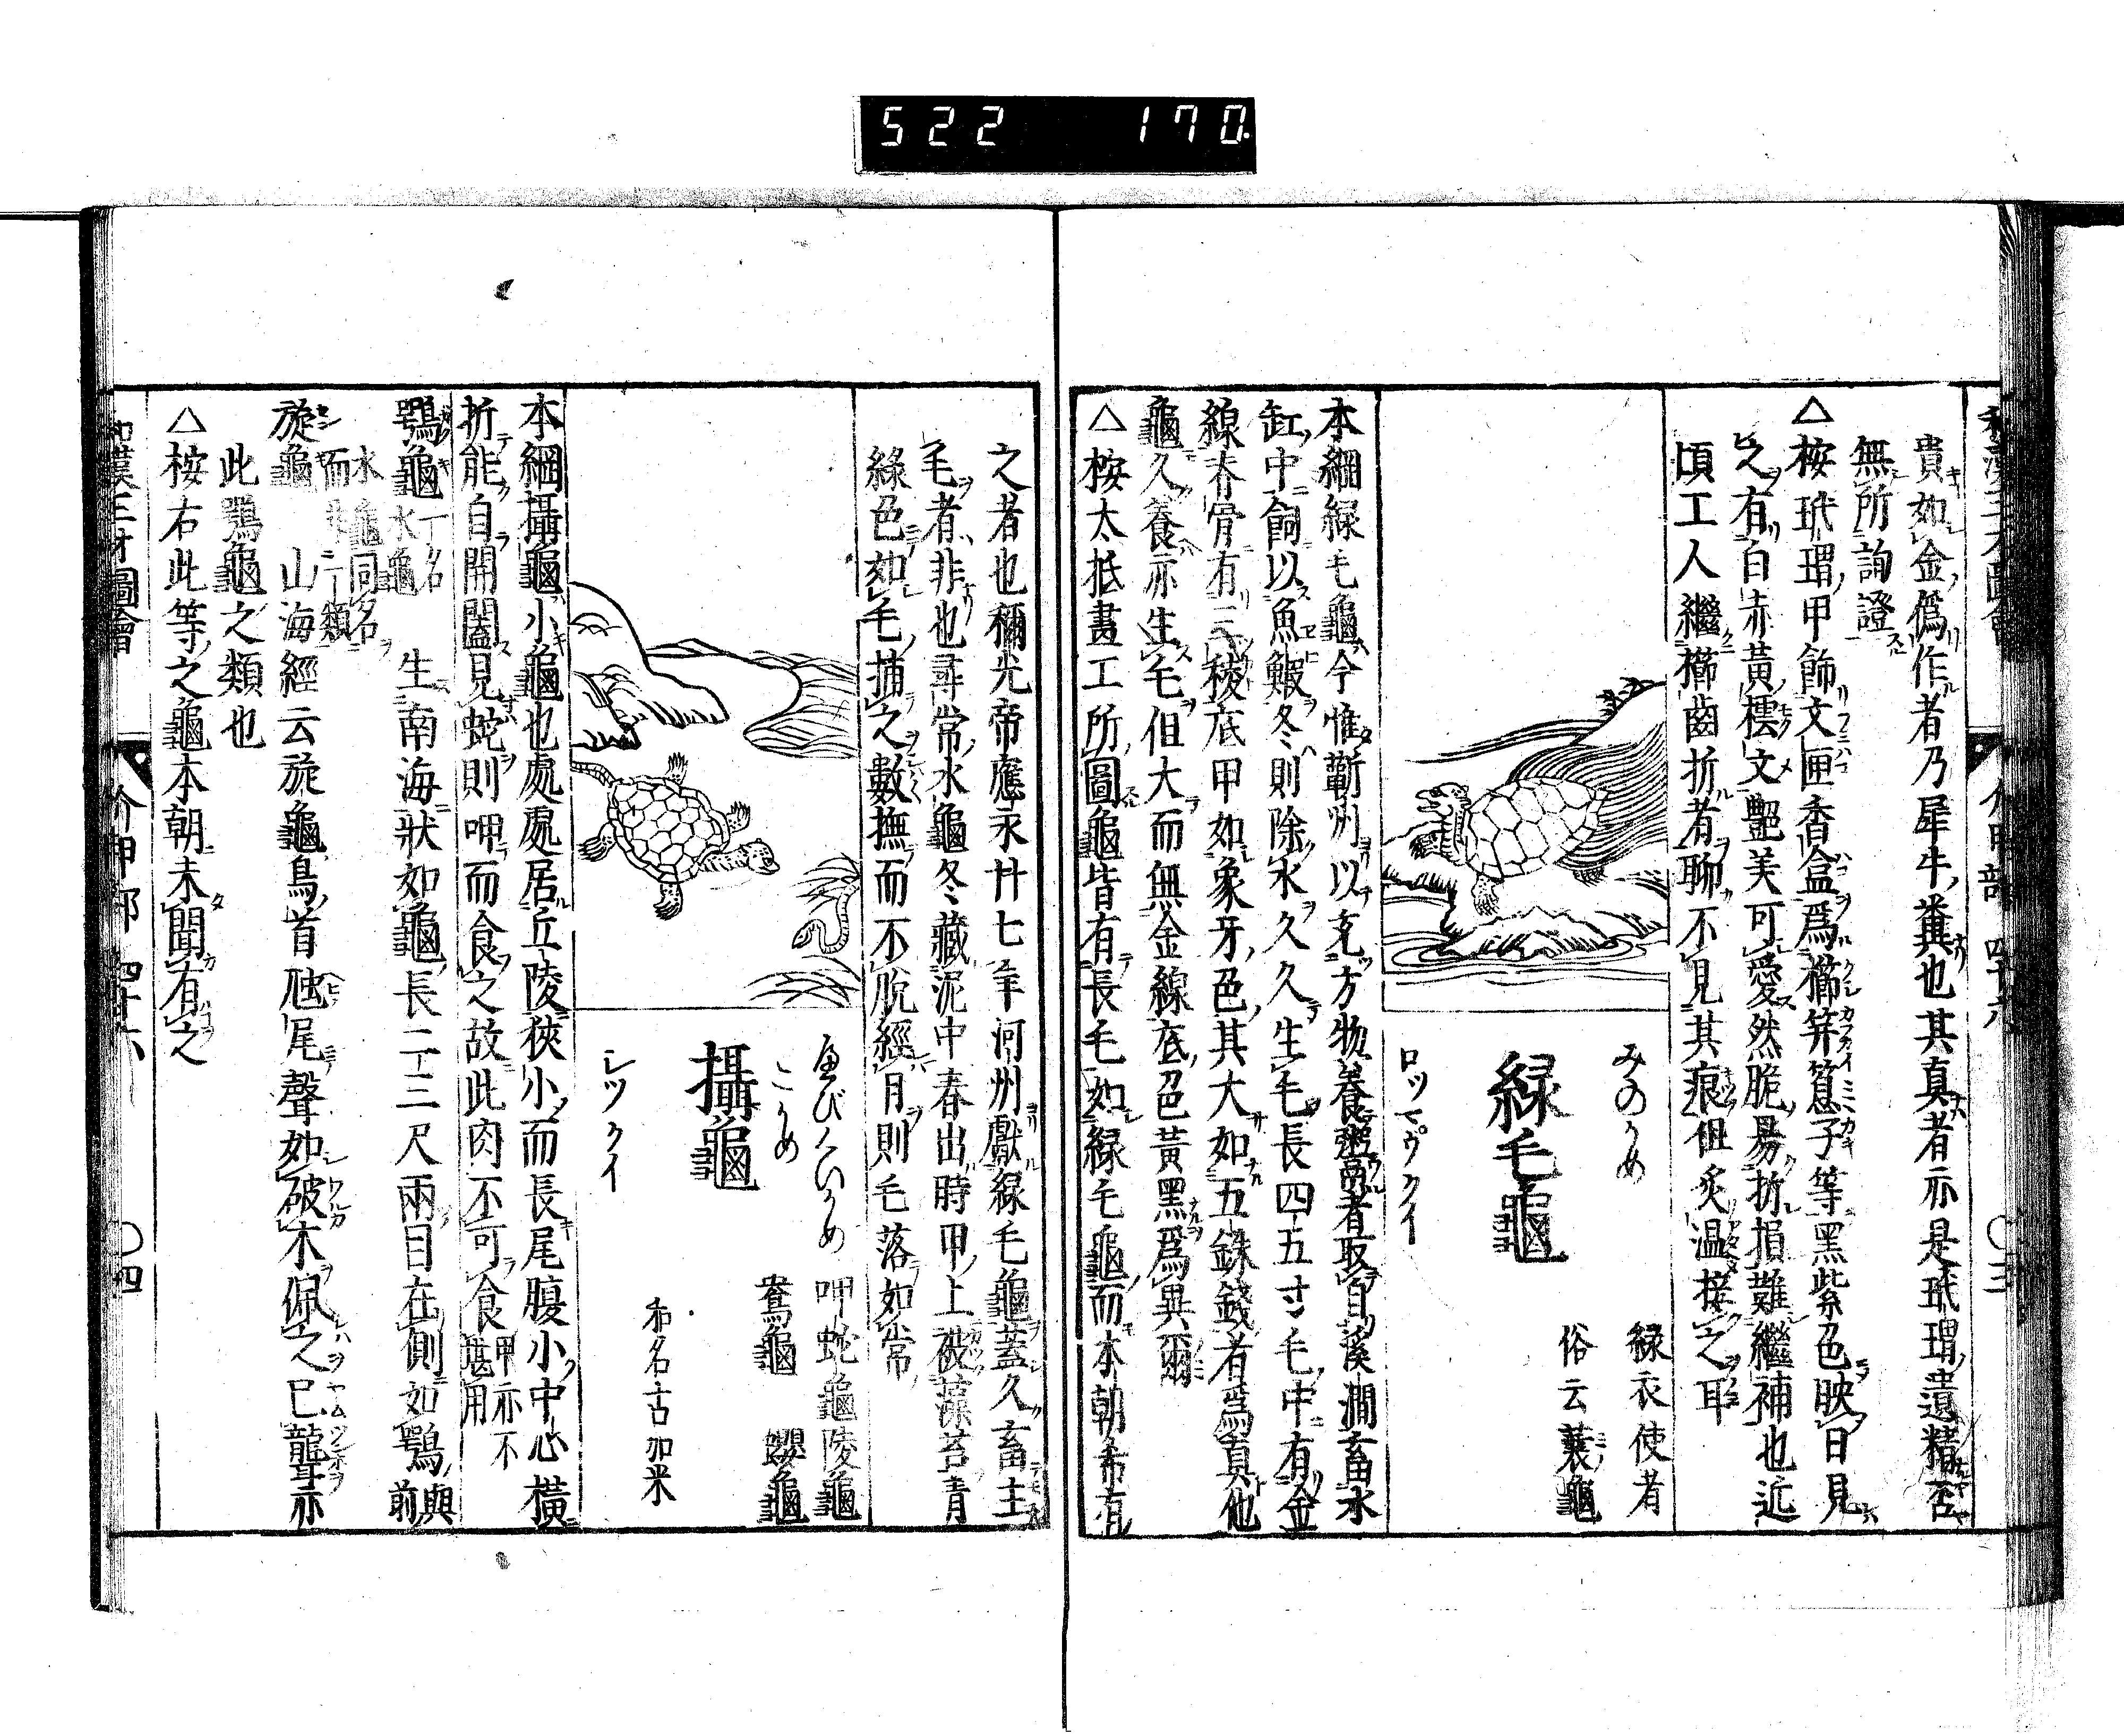 522 170.
和漢三才圖會 介甲部 四十六 〇三
貴如金僞作者乃犀牛糞也其真者亦是玳瑁遺精否
無所詢證
△按玳瑁甲飾文匣香盒爲櫛笄篦子等黑紫色映日見
之有白赤黃樗文艶美可愛然脆易折損難繼補也近
頃工人繼櫛齒折者聊不見其痕但炙温接之耳
みのかめ
綠衣使者
俗云蓑龜
綠毛龜
ロッマ゜ウクイ
本綱綠毛龜今惟蘄州以充方物養鬻者取自溪澗畜水
缸中飼以魚鰕冬則除水久久生毛長四五寸毛中有金
線脊骨有三稜底甲如象牙色其大如五銖錢者爲真他
龜久養亦生毛但大而無金線底色黃黑爲異爾
△按太抵畫工所圖龜皆有長毛如綠毛龜而本朝希有
之者也稱光帝應永廿七年河州獻綠毛龜蓋久畜主
毛者非也尋常水龜冬藏泥中春出時甲上被藻苔青
綠色如毛捕之數撫而不脫經月則毛落如常
へびくいかめ
こかめ
呷蛇龜 陵龜
鴦龜 蠳龜
和名古加米
攝龜
レツクイ
本綱攝龜小龜也處處居丘陵狹小而長尾腹小中心橫
折能自開闔見蛇則呷而食之故此肉不可食甲亦不堪用
鶚龜 一名水龜 生南海狀如龜長二三尺兩目在側如鶚與前
水龜同名而非一類
旋龜 山海經云旋龜鳥首虺尾聲如破木佩之已聾亦
此鶚龜之類也
△按右此等之龜本朝未聞有之
和漢三才圖會 介甲部 四十六 〇四